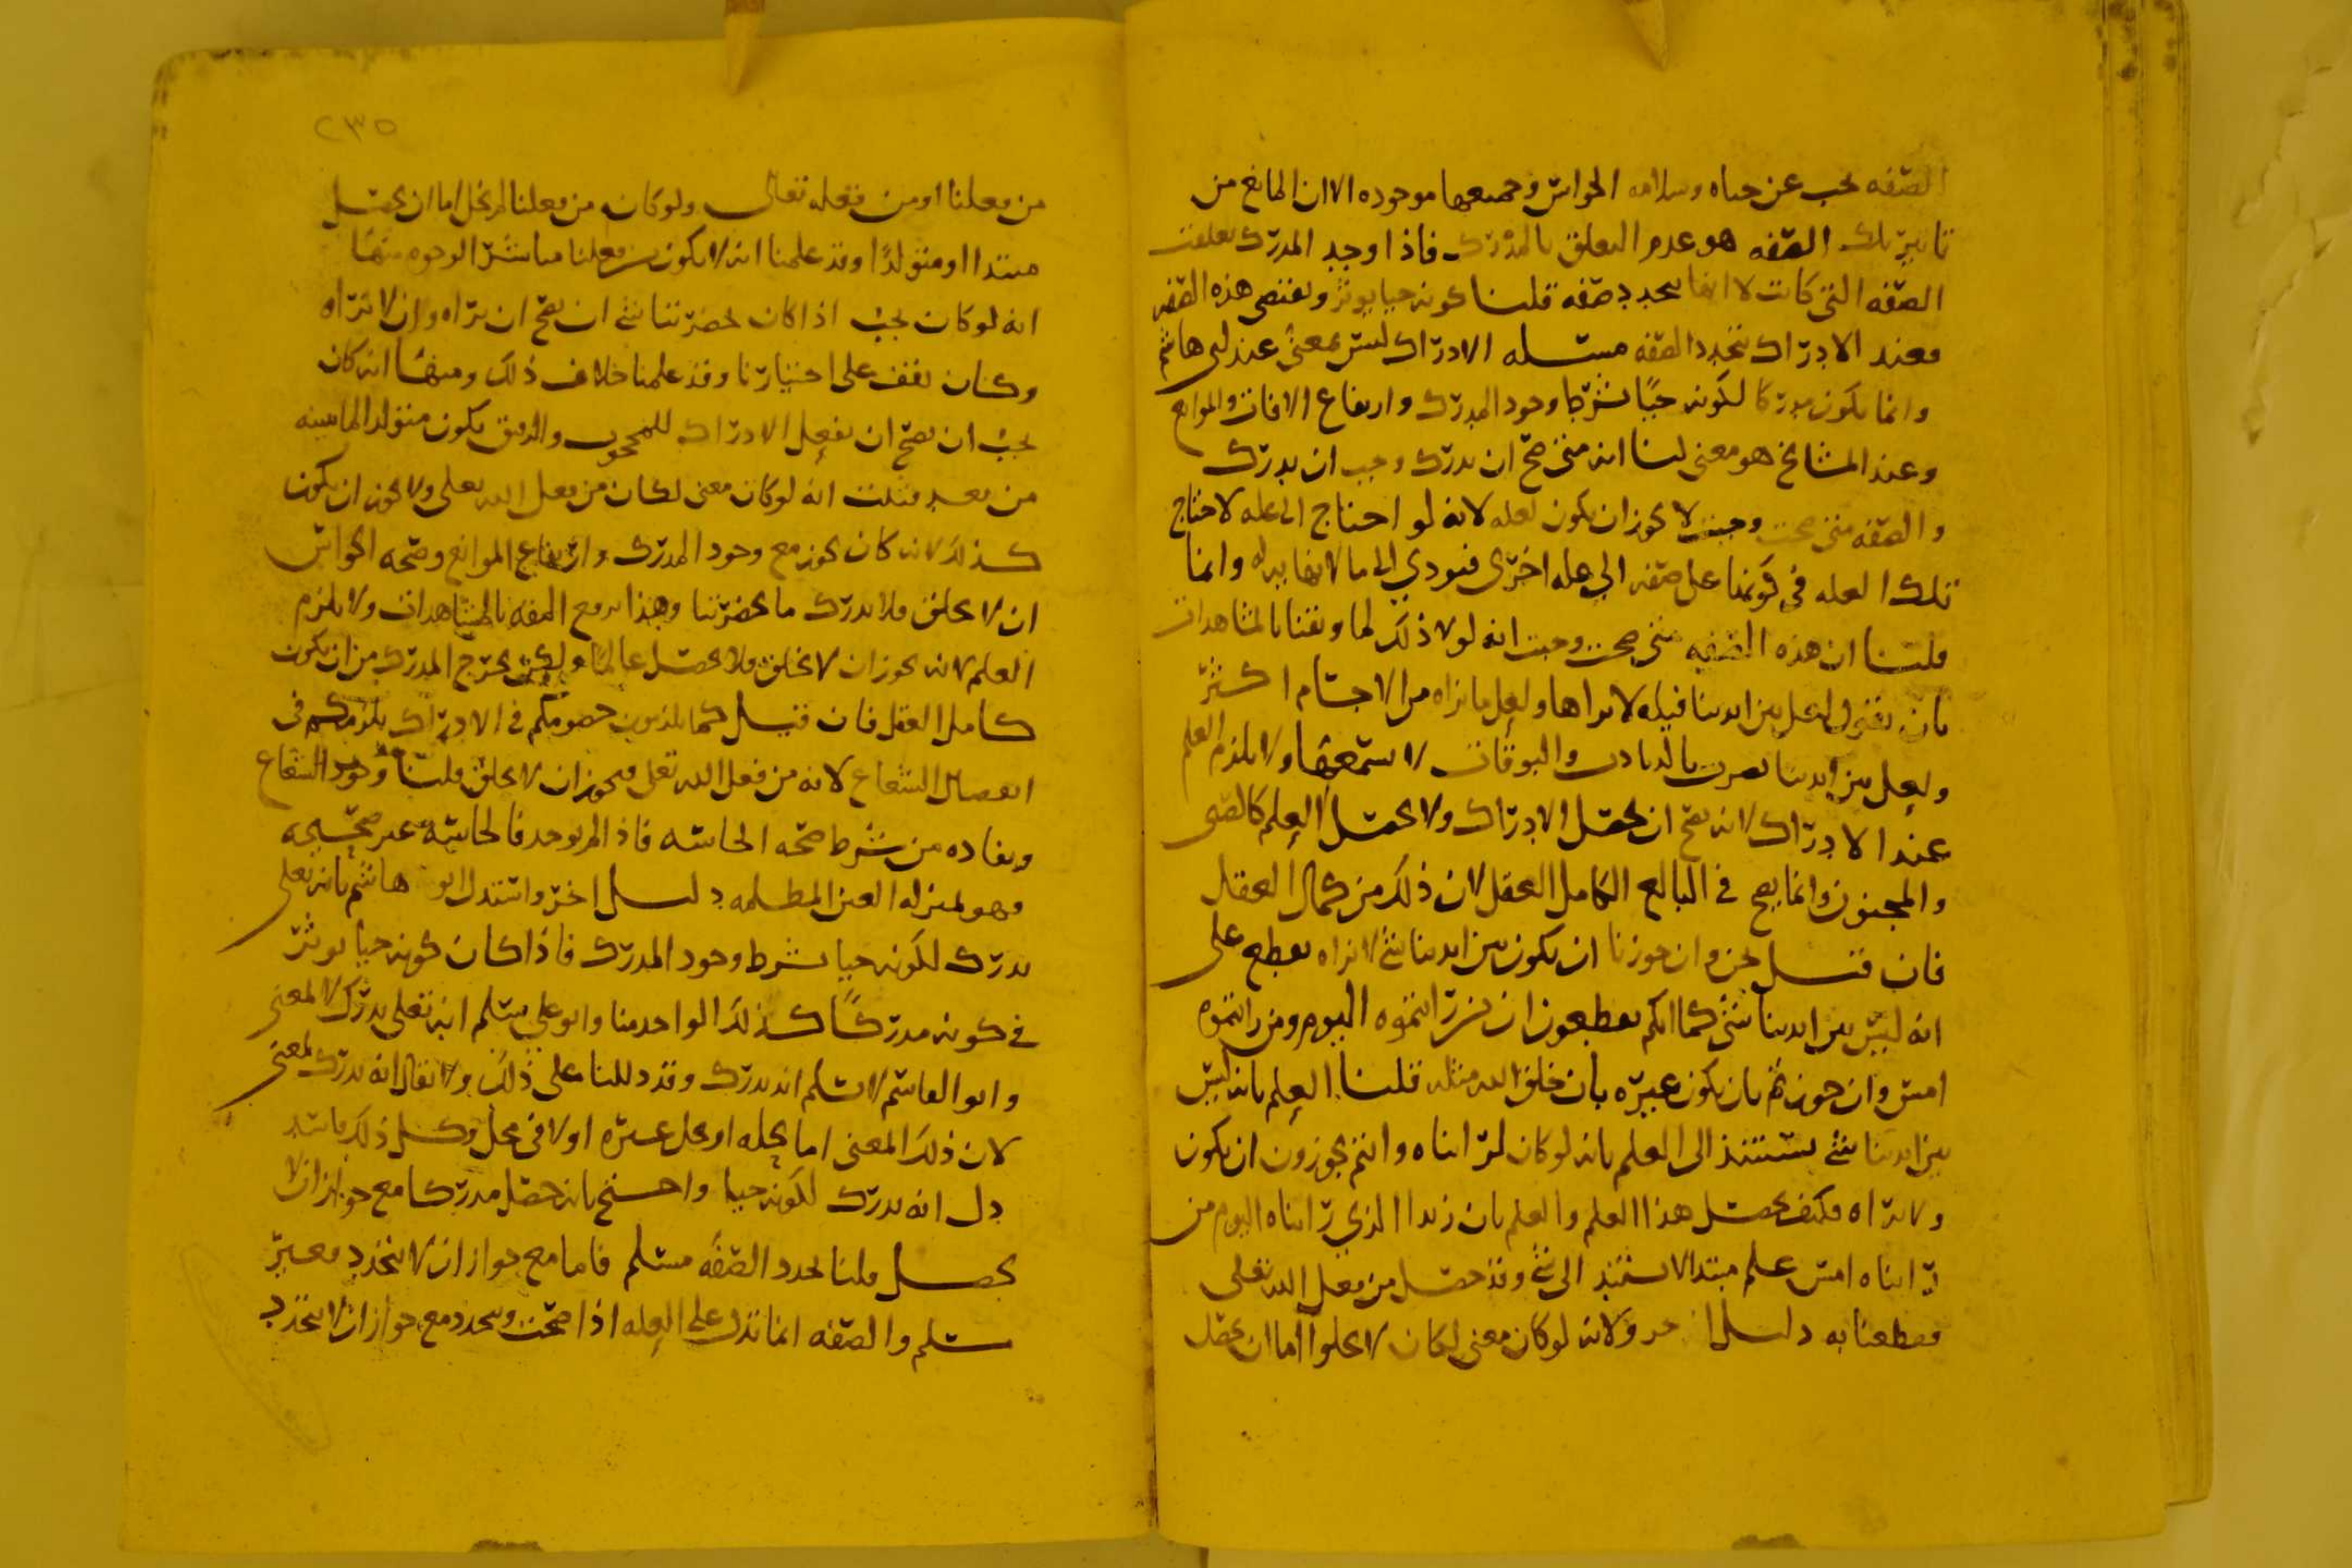 الصفه يجب عن حياه وسلامه الحواس وجميعها موجوده الا ان المانع من
تاثير تلك الصفه هو عدم التعلق بالمدرك فاذا وجد المدرك تعلقت
الصفه التي كانت لا انها تتجدد صفه قلنا كونه حيا يوثر ويقتضي هذه الصفه
فعند الادراك تتجدد الصفه مسئله الادراك ليس بمعنى عند ابي هاشم
وانما يكون مدركا لكونه حيًا بشرط وجود المدرك وارتفاع الافات والموانع
وعند المشايخ هو معنى لنا انه متى صح ان يدرك وجب ان يدرك
والصفه متى صحت وجبت لا يجوز ان يكون لعله لانه لو احتاج الى عله لاحتاج
تلك العله في كونها على صفه الي عله اخرى فتودي الى ما لا نهايه له وانما
قلنا ان هذه الصفه متى صحت وجبت انه لولا ذلك لما وثقنا بالمشاهدات
بان نقول لعل بين ايدينا فيله لا نراها ولعل ما نراه من الاجسام اكثر
ولعل بين ايدينا تضرب بالدبادب والبوقات لا نسمعها ولا يلزم العلم
عند الادراك لانه يصح ان يحصل الادراك ولا يحصل العلم كالصبي
والمجنون وانما يصح في البالغ الكامل العقل لان ذلك من كمال العقل
فان قيل نحن وان جوزنا ان يكون بين ايدينا شي لا نراه نقطع على
انه ليس بين ايدينا شي كما انكم تقطعون ان من رايتموه اليوم ومن رايتموه
امس وان جوزتم بان يكون غيره بان خلق الله مثله قلنا العلم بانه ليس
بين ايدينا شي يستند الى العلم بانه لو كان لراناه وانتم تجوزون ان يكون
ولا نراه فكيف يحصل هذا العلم والعلم بان زيدا الذي رايناه اليوم من
رايناه امس علم مبتدا لا يستند الى شي وقد حصل من فعل الله تعلى
فقطعنا به دليل اخر ولانه لو كان معنى لكان لا يخلوا اما ان يحصل
٢٣٥
من فعلنا او من فعله تعالى ولو كان من فعلنا لم يخل اما ان يحصل
مبتدا او متولدًا وقد علمنا انه لا يكون من فعلنا مباشر الوجوه منها
انه لو كان يجب اذا كان بحضرتنا شي ان يصح ان نراه وان لا نراه
وكان يقف على اختيارنا وقد علمنا خلاف ذلك ومنها انه كان
يجب ان يصح ان يفعل الادراك للمحجوب والرقيق يكون متولدا لما نبينه
من بعد فثبت انه لو كان معنى لكان من فعل الله تعلى ولا يجوز ان يكون
كذلك لانه كان يجوز مع وجود المدرك وارتفاع الموانع وصحه الحواس
ان لا يخلق فلا ندرك ما بحضرتنا وهذا يرفع الثقه بالمشاهدات ولا يلزم
العلم لانه يجوز ان لا يخلق فلا يحصل عالما ولكن يخرج المدرك من ان يكون
كامل العقل فان قيل كما يلزمون خصومكم في الادراك يلزمكم في
انفصال الشعاع لانه من فعل الله تعلى فيجوز ان لا يخلق قلنا وجود الشعاع
ونفاده من شرط صحه الحاسه فاذا لم يوجد فالحاسه غير صحيحه
وهو بمنزله العين المظلمه دليل اخر واستدل ابو هاشم بانه تعلى
يدرك لكونه حيا بشرط وجود المدرك فاذا كان كونه حيا يوثر
في كونه مدركًا كذلك الواحد منا وابو علي يسلم انه تعلى يدرك لا لمعنى
وابو القاسم لا يسلم انه يدرك وقد دللنا على ذلك ولا يقال انه يدرك لمعنى
لان ذلك المعنى اما يحله او يحل غيره او لا في محل وكل ذلك فاسد
دل انه يدرك لكونه حيا واحتج بانه حصل مدركا مع جواز ان لا
يحصل قلنا تجدد الصفه مسلم فاما مع جواز ان لا يتجدد فغير
مسلم والصفه انما تدل على العله اذا صحت وتتجدد مع جواز ان لا تتجدد